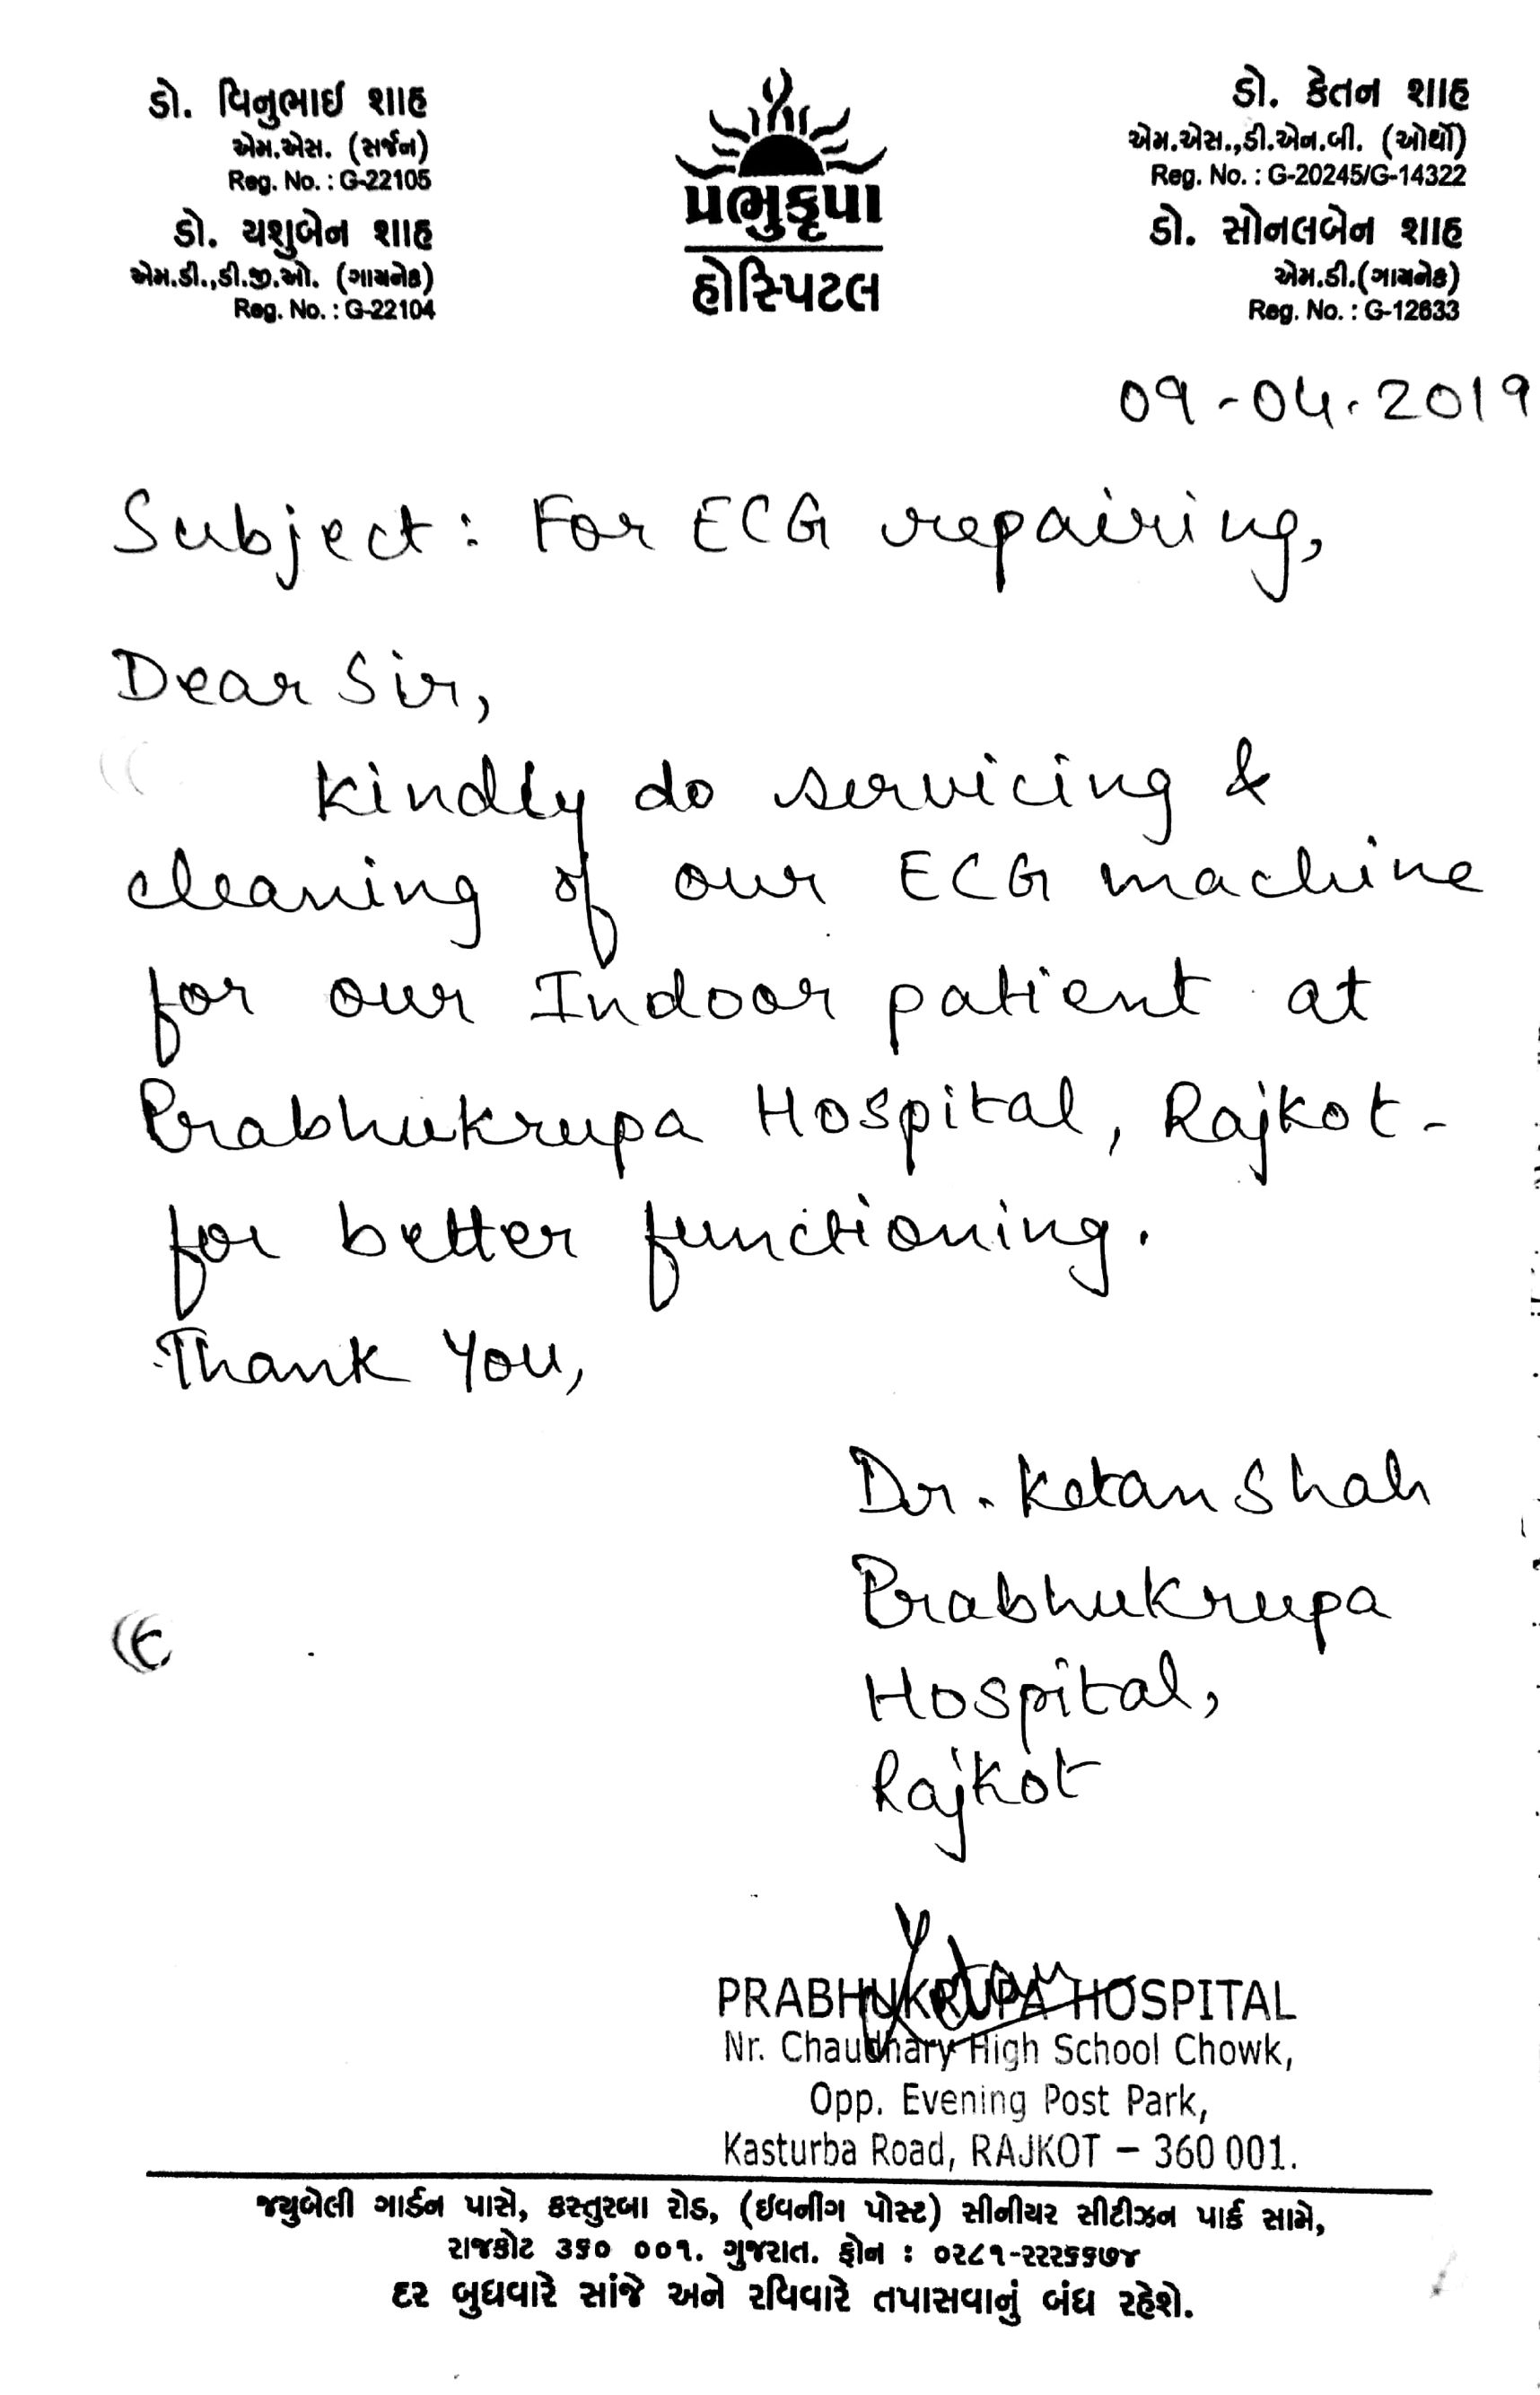 ડો. વિનુભાઈ શાહ
એમ.એસ. (સર્જન)
Reg. No. : G-22105
ડો. યશુબેન શાહ
એમ.ડી.,ડી.જી.ઓ. (ગાયનેક)
Reg. No. : G-22104
પ્રભુકૃપા
હોસ્પિટલ
ડો. કેતન શાહ
એમ.એસ.,ડી.એન.બી. (ઓર્થો)
Reg. No. : G-20245/G-14322
ડો. સોનલબેન શાહ
એમ.ડી.(ગાયનેક)
Reg. No. : G-12633
09-04.2019
Subject: For ECG repairing,
Dear Sir,
Kindly do servicing &
cleaning of our ECG machine
for our Indoor patient at
Prabhukrupa Hospital, Rajkot-
for better functioning.
Thank You,
Dr. Ketan Shah
Prabhukrupa
Hospital,
Rajkot
PRABHUKRUPA HOSPITAL
Nr. Chaudhary High School Chowk,
Opp. Evening Post Park,
Kasturba Road, RAJKOT – 360 001.
જ્યુબેલી ગાર્ડન પાસે, કસ્તુરબા રોડ, (ઈવનીંગ પોસ્ટ) સીનીયર સીટીઝન પાર્ક સામે,
રાજકોટ ૩૬૦ ૦૦૧. ગુજરાત. ફોન : ૦૨૮૧-૨૨૨૬૬૭૪
દર બુધવારે સાંજે અને રવિવારે તપાસવાનું બંધ રહેશે.